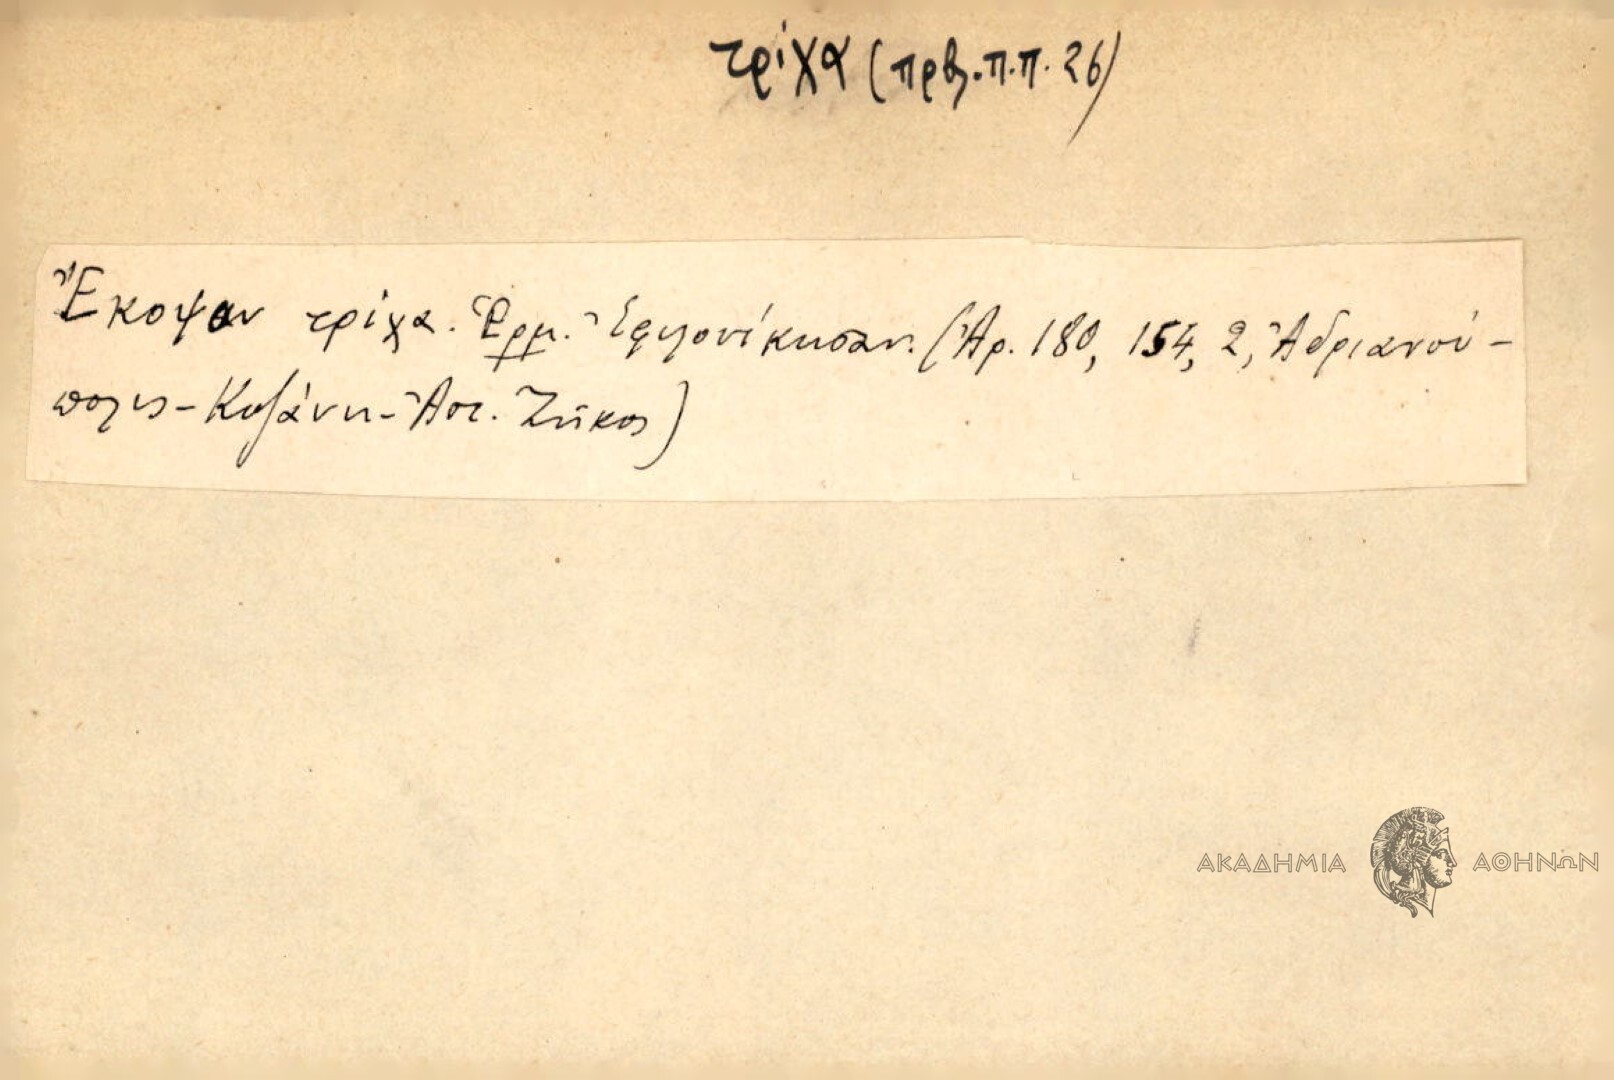 τρίχα (πρβ. π.π. 26)
Ἔκοψαν τρίχα. Ἑρμ. Ἐφιλονίκησαν. (Ἀρ. 180, 154, 2, Ἀδριανού-
πολις - Κοζάνη - Ἀστ. Ζήκος)
ΑΚΑΔΗΜΙΑ ΑΘΗΝΩΝ